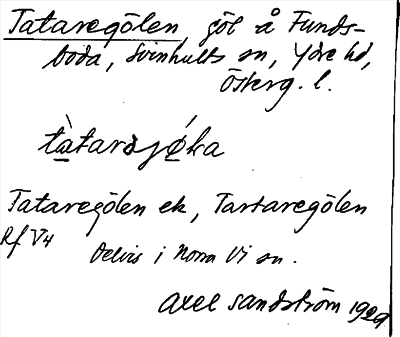 Tataregölen, göl å Funds-
boda, Svinhults sn, Ydre hd,
Österg. l.
tàtarəjø̀ka
Tataregölen ek, Tartaregölen
Rf V4
Delvis i Norra Vi sn.
Axel Sandström 1929